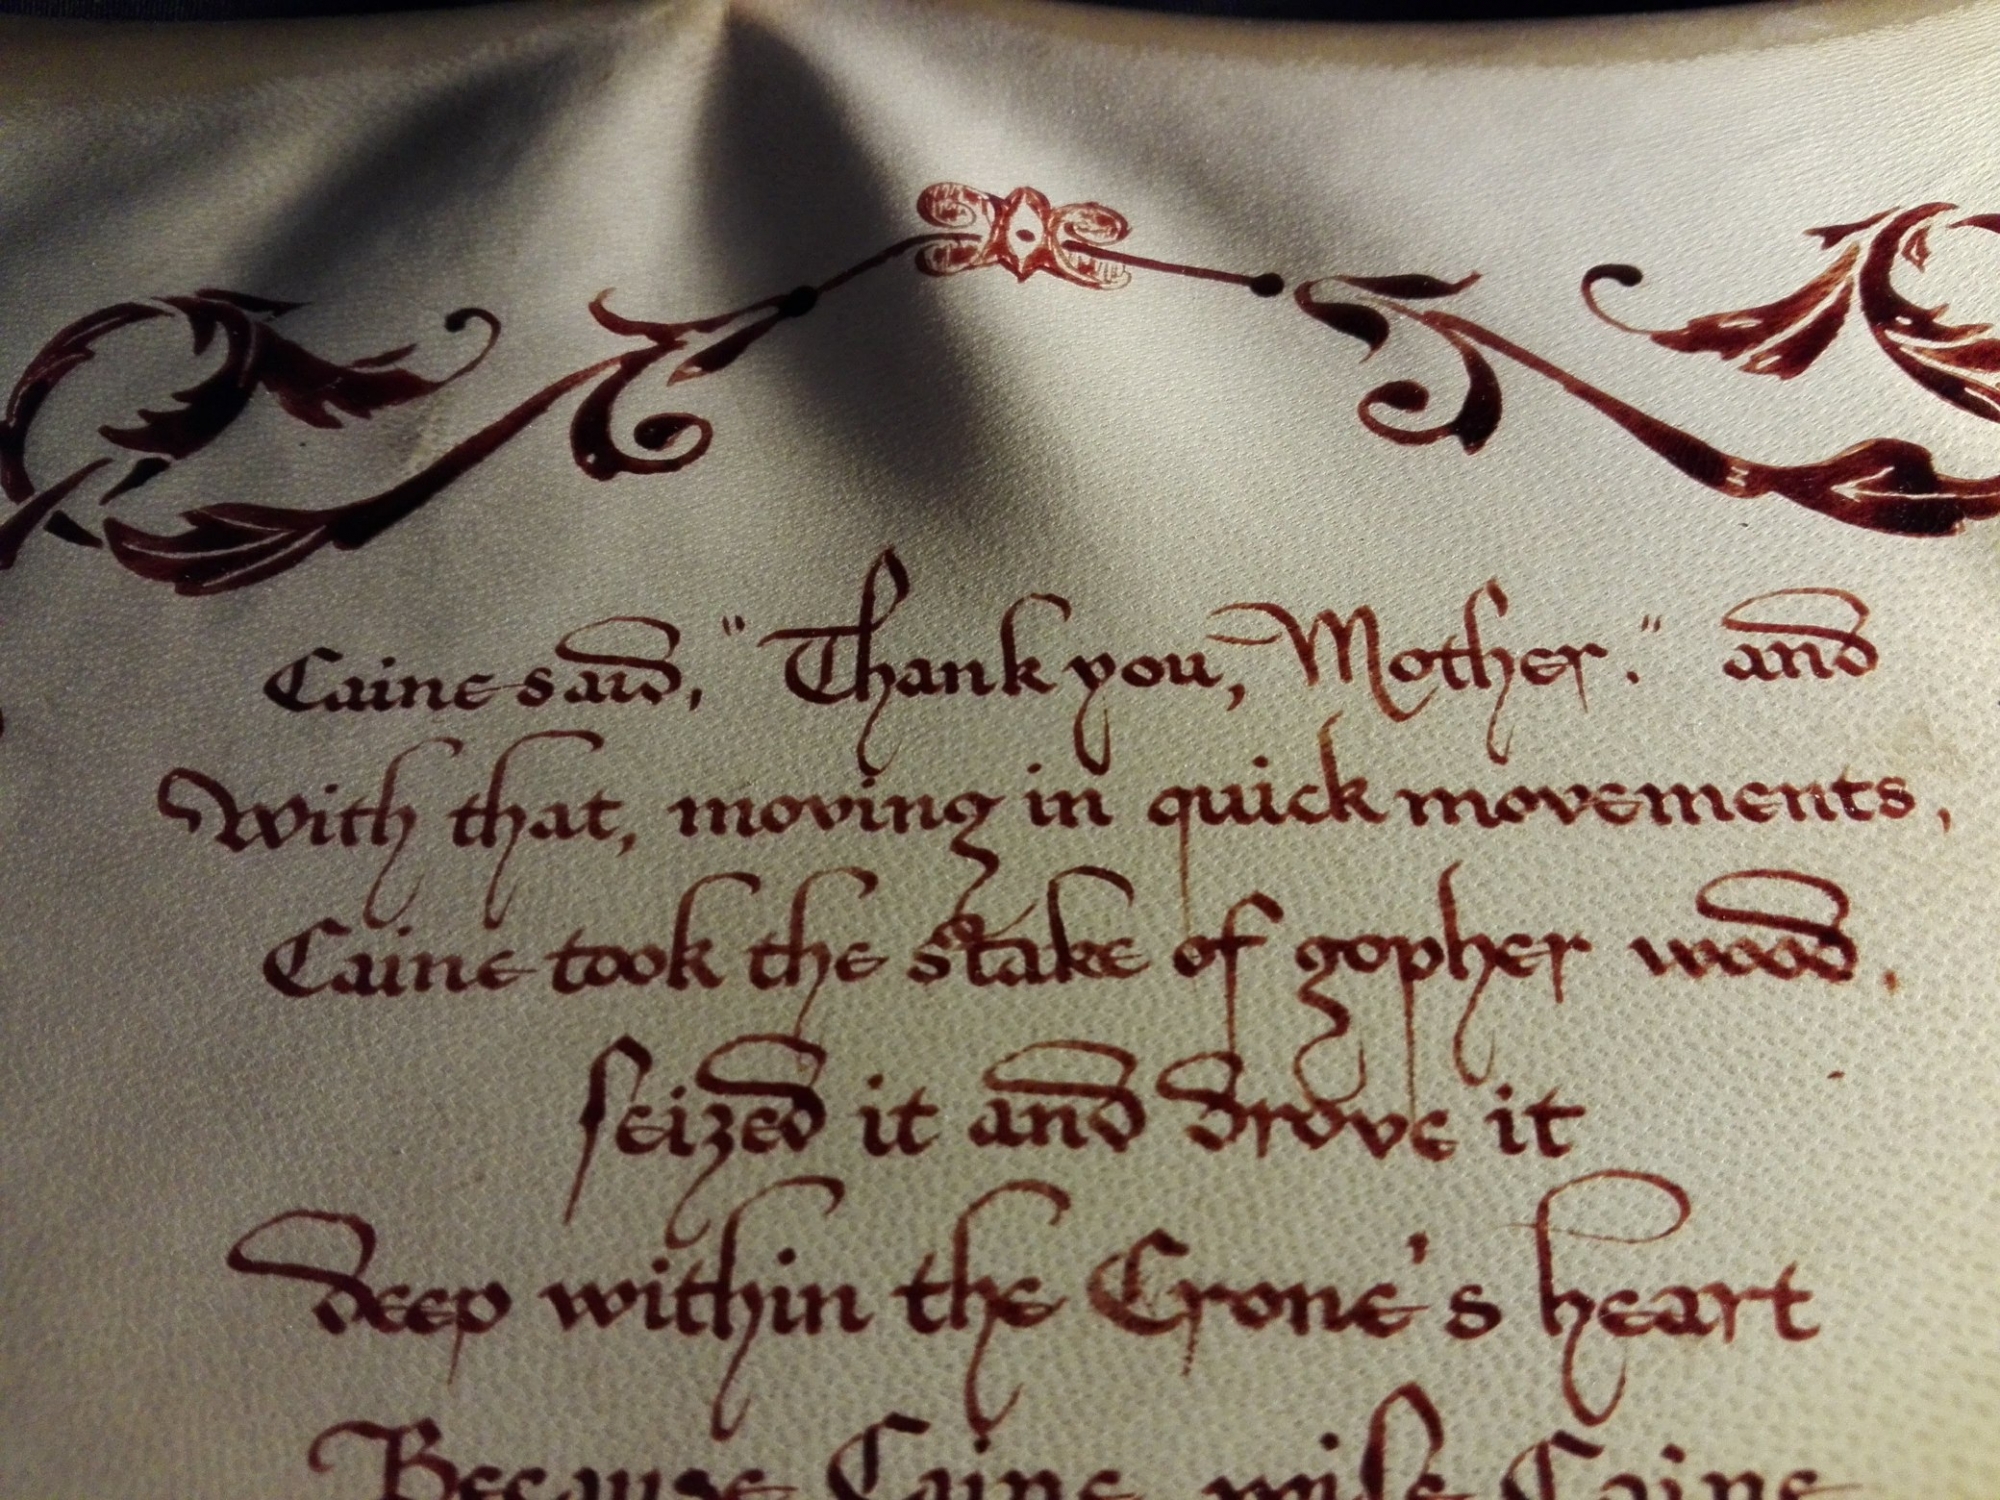 Caine said, "Thank you, Mother." and
With that, moving in quick movements,
Caine took the stake of gopher wood,
seized it and drove it
deep within the Crone's heart
Because Caine, wise Caine